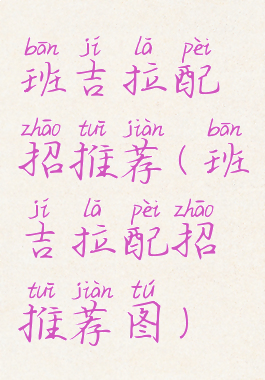 bān jí lā pèi
班吉拉配
zhāo tuī jiàn bān
招推荐(班
jí lā pèi zhāo
吉拉配招
tuī jiàn tú
推荐图)